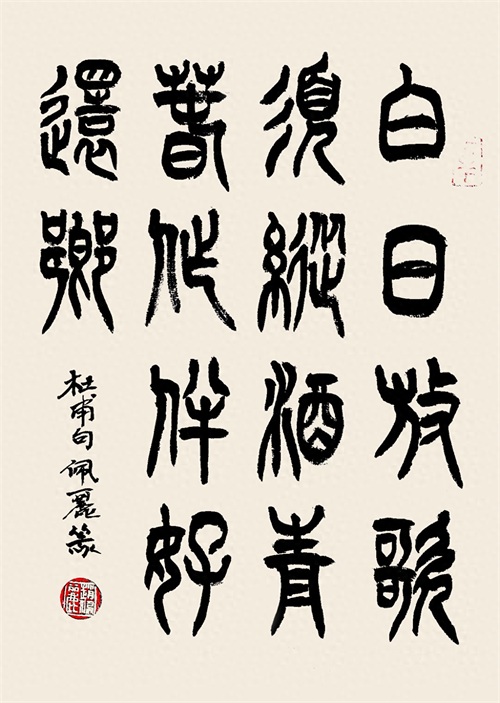 白日放歌
須縱酒青
春作伴好
還鄉
杜甫句佩麗篆